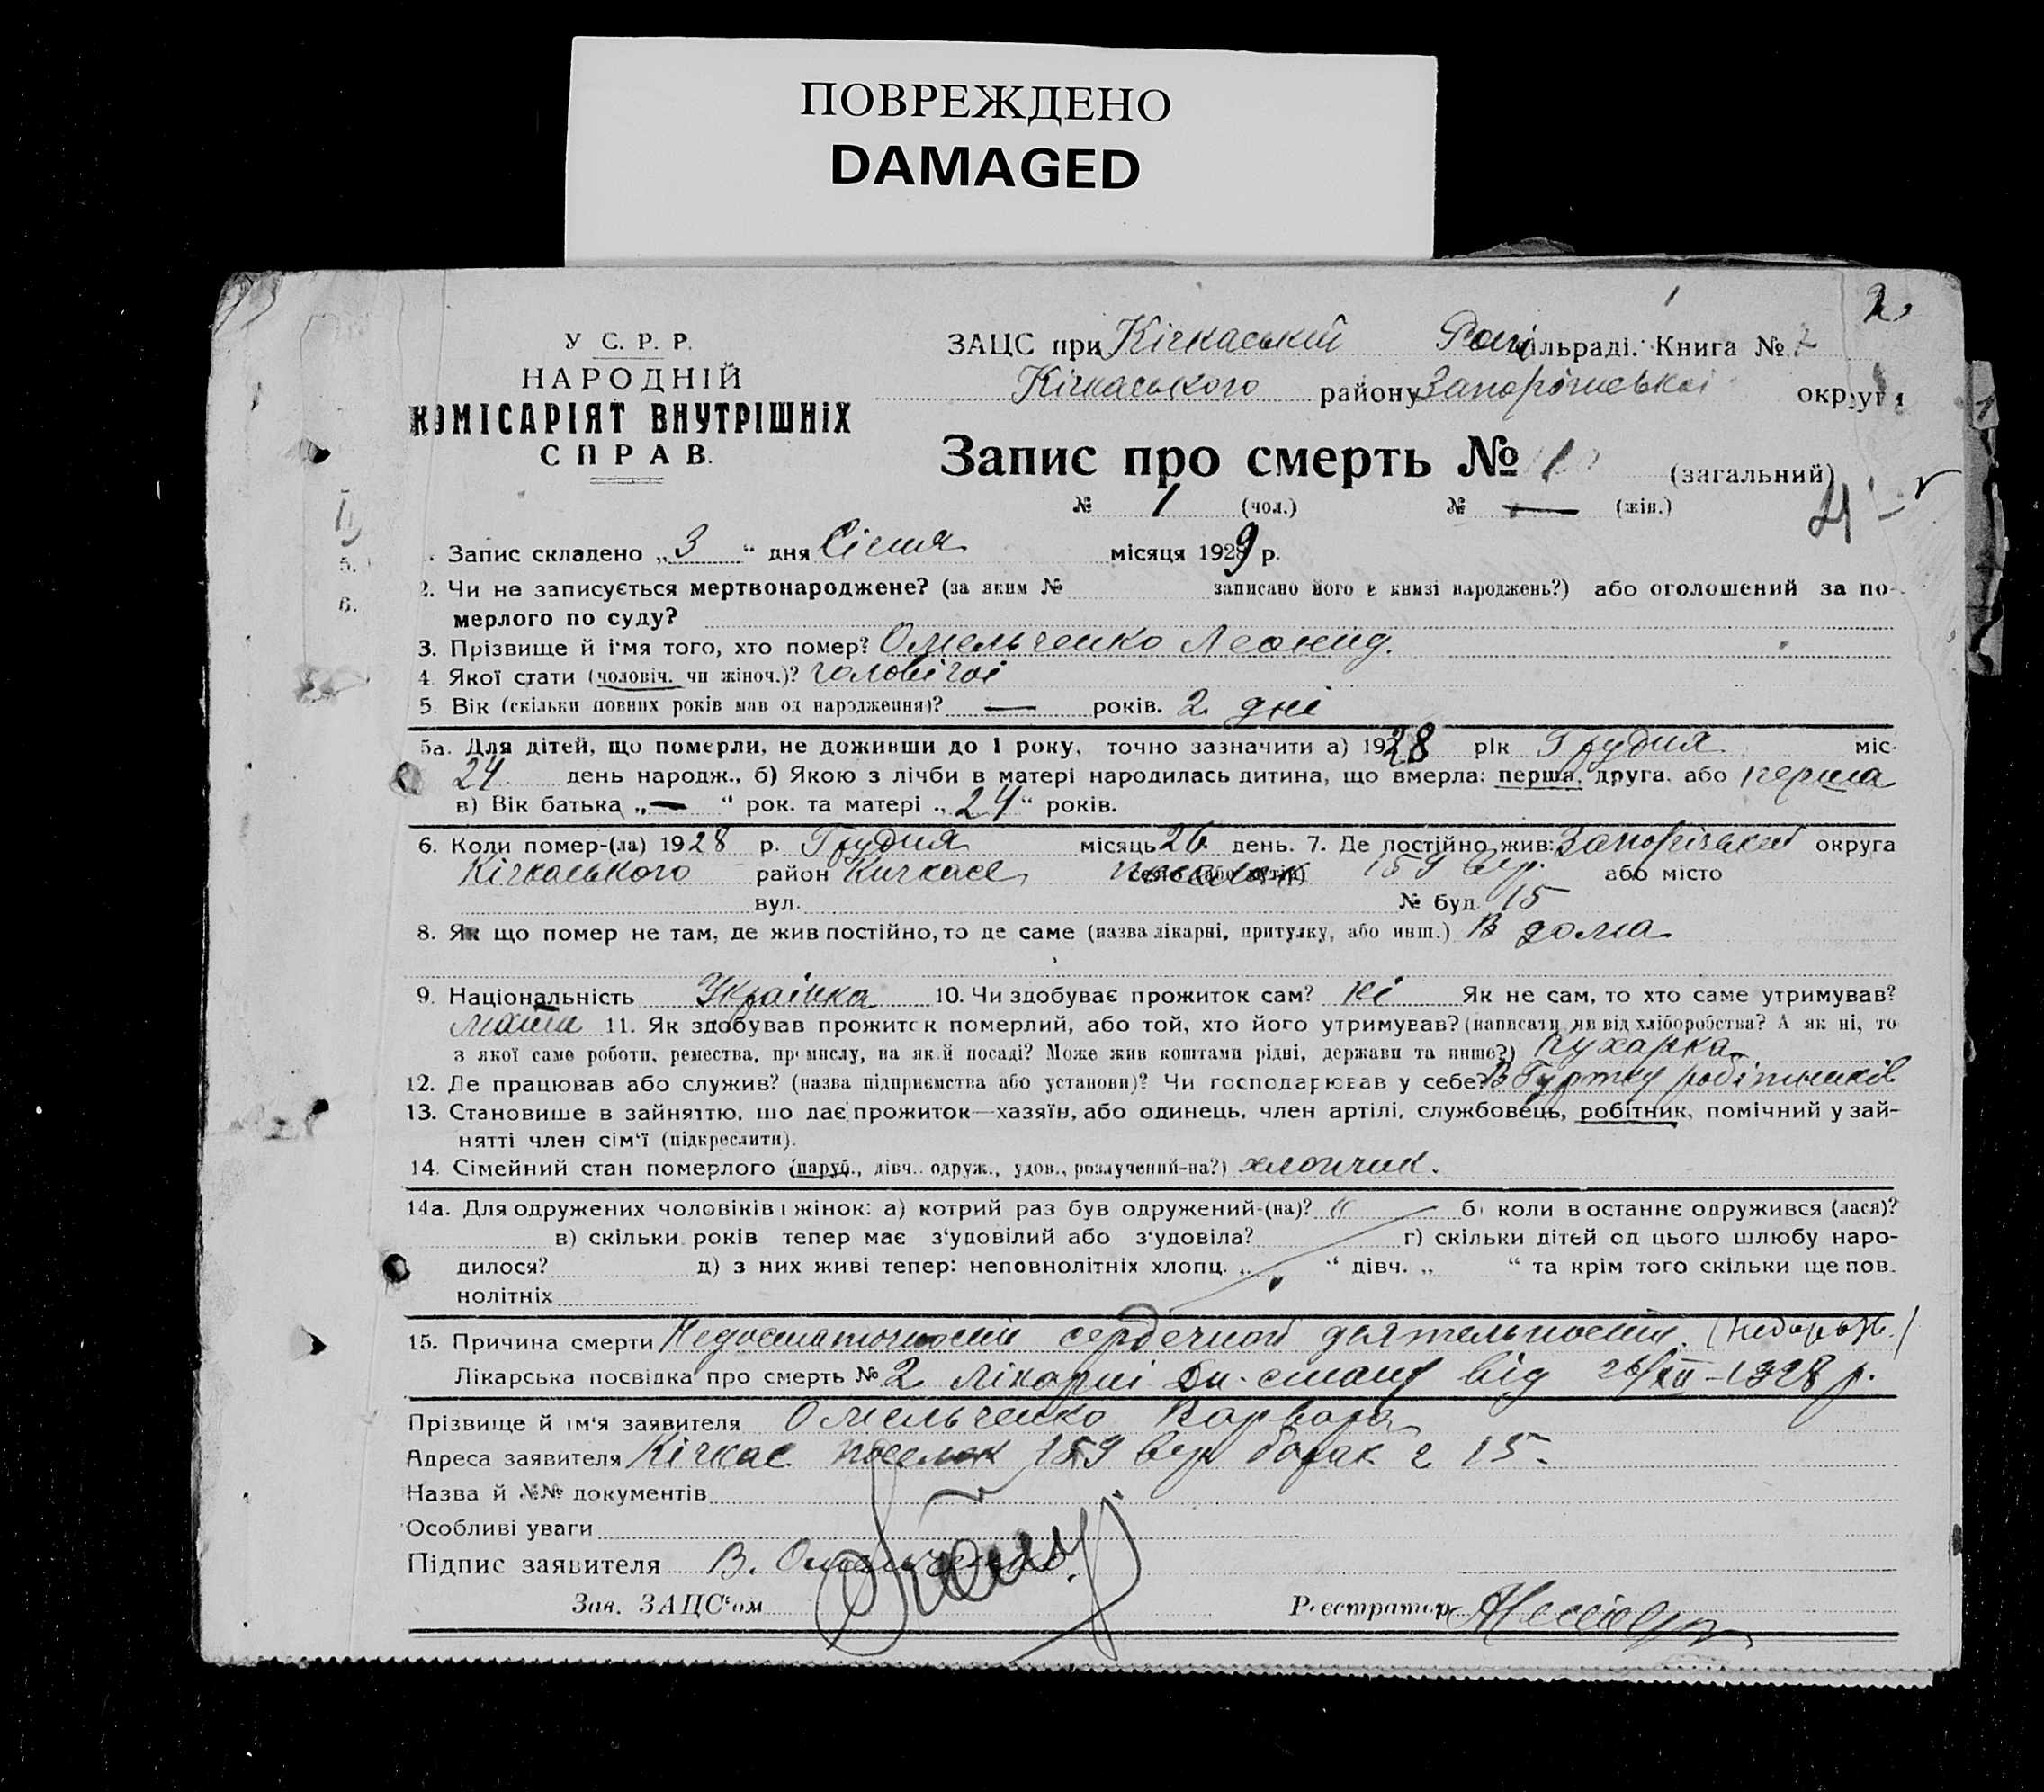 ПОВРЕЖДЕНО
DAMAGED
2
У С. Р. Р.
НАРОДНІЙ
КОМІСАРІЯТ ВНУТРІШНІХ
СПРАВ.
ЗАЦС при Кічкаській сільраді. Книга №
Кічкаського району Запоріжської округи
Запис про смерть № 1 (загальний)
№ 1 (чол.) № — (жін.)
Запис складено „3" дня Січня місяця 1929 р.
2. Чи не записується мертвонароджене? (за яким № записано його в книзі народжень?) або оголошений за по-
мерлого по суду?
3. Прізвище й ім'я того, хто помер? Омельченко Леонид.
4. Якої стати (чоловіч. чи жіноч.)? чоловічої
5. Вік (скільки повних років мав од народження)? — років. 2 дні
5а. Для дітей, що померли, не доживши до 1 року, точно зазначити а) 1928 рік Грудня міс.
24 день народж., б) Якою з лічби в матері народилась дитина, що вмерла: перша, друга. або перша
в) Вік батька „—" рок. та матері „24" років.
6. Коли помер-(ла) 1928 р. Грудня місяць 26 день. 7. Де постійно жив: Запорізької округа
Кічкаського район Кичкас село (або хутір) 159 або місто
вул. № буд. 15
8. Як що помер не там, де жив постійно, то де саме (назва лікарні, притулку, або инш.) В дома
9. Національність Українка 10. Чи здобуває прожиток сам? ні Як не сам, то хто саме утримував?
мати 11. Як здобував прожиток померлий, або той, хто його утримував? (написати чи від хліборобства? А як ні, то
з якої саме роботи, ремества, промислу, на якій посаді? Може жив коштами рідні, держави та инше?) кухарка
12. Де працював або служив? (назва підприємства або установи)? Чи господарював у себе? В Гуртку робітників
13. Становище в зайняттю, що дає прожиток—хазяїн, або одинець, член артілі, службовець, робітник, помічний у зай-
нятті член сім'ї (підкреслити).
14. Сімейний стан померлого (паруб., дівч. одруж., удов., розлучений-на?) хлопчик.
14а. Для одружених чоловіків і жінок: а) котрий раз був одружений-(на)? " б) коли в останнє одружився (лася)?
в) скільки років тепер має з'удовілий або з'удовіла? г) скільки дітей од цього шлюбу наро-
дилося? д) з них живі тепер: неповнолітніх хлопц. „ " дівч. „ " та крім того скільки ще пов-
нолітніх
15. Причина смерти Недостаточности сердечной деятельности.
Лікарська посвідка про смерть № 2 лікарні від 26/XII-1928 р.
Прізвище й ім'я заявителя Омельченко Варвара
Адреса заявителя Кічкас поселок 159 барак 15
Назва й №№ документів
Особливі уваги
Підпис заявителя В. Омельченко.
Зав. ЗАЦС'ом Реєстратор